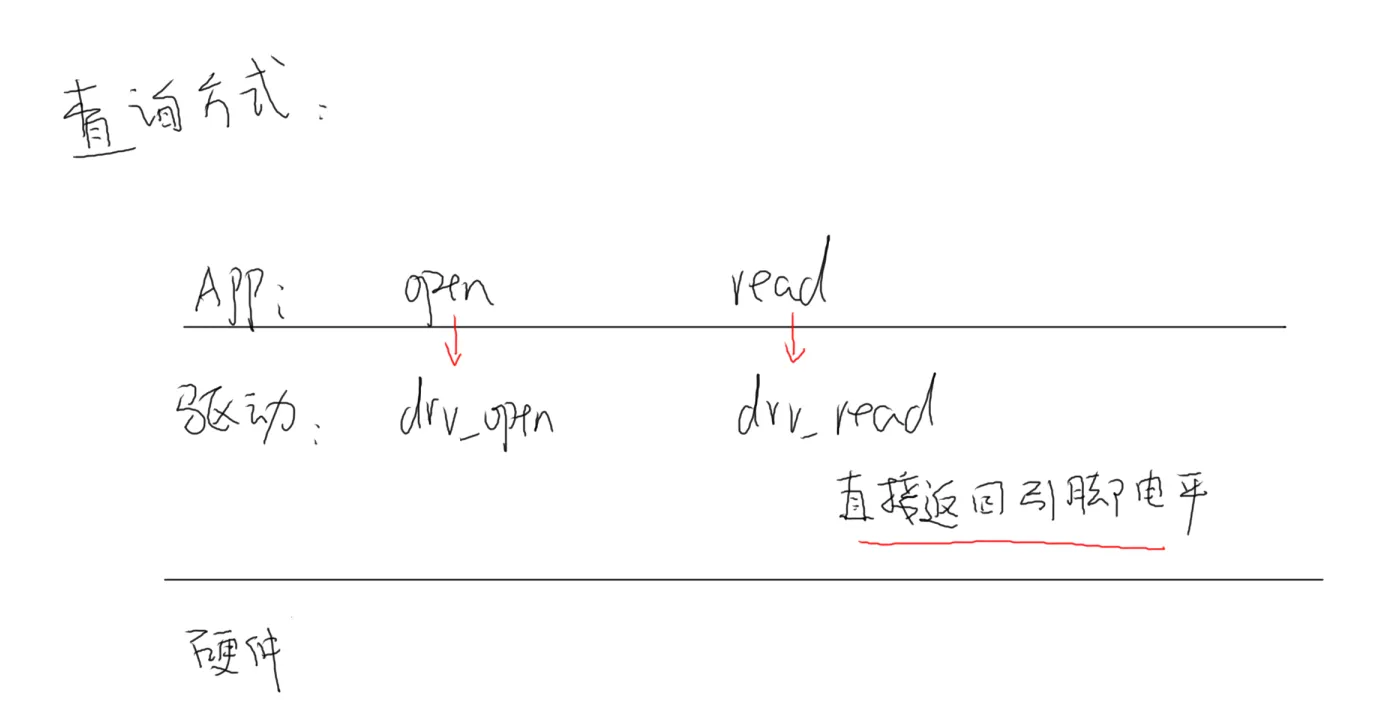 查询方式：
App： open read
驱动： drv_open drv_read
直接返回引脚电平
硬件